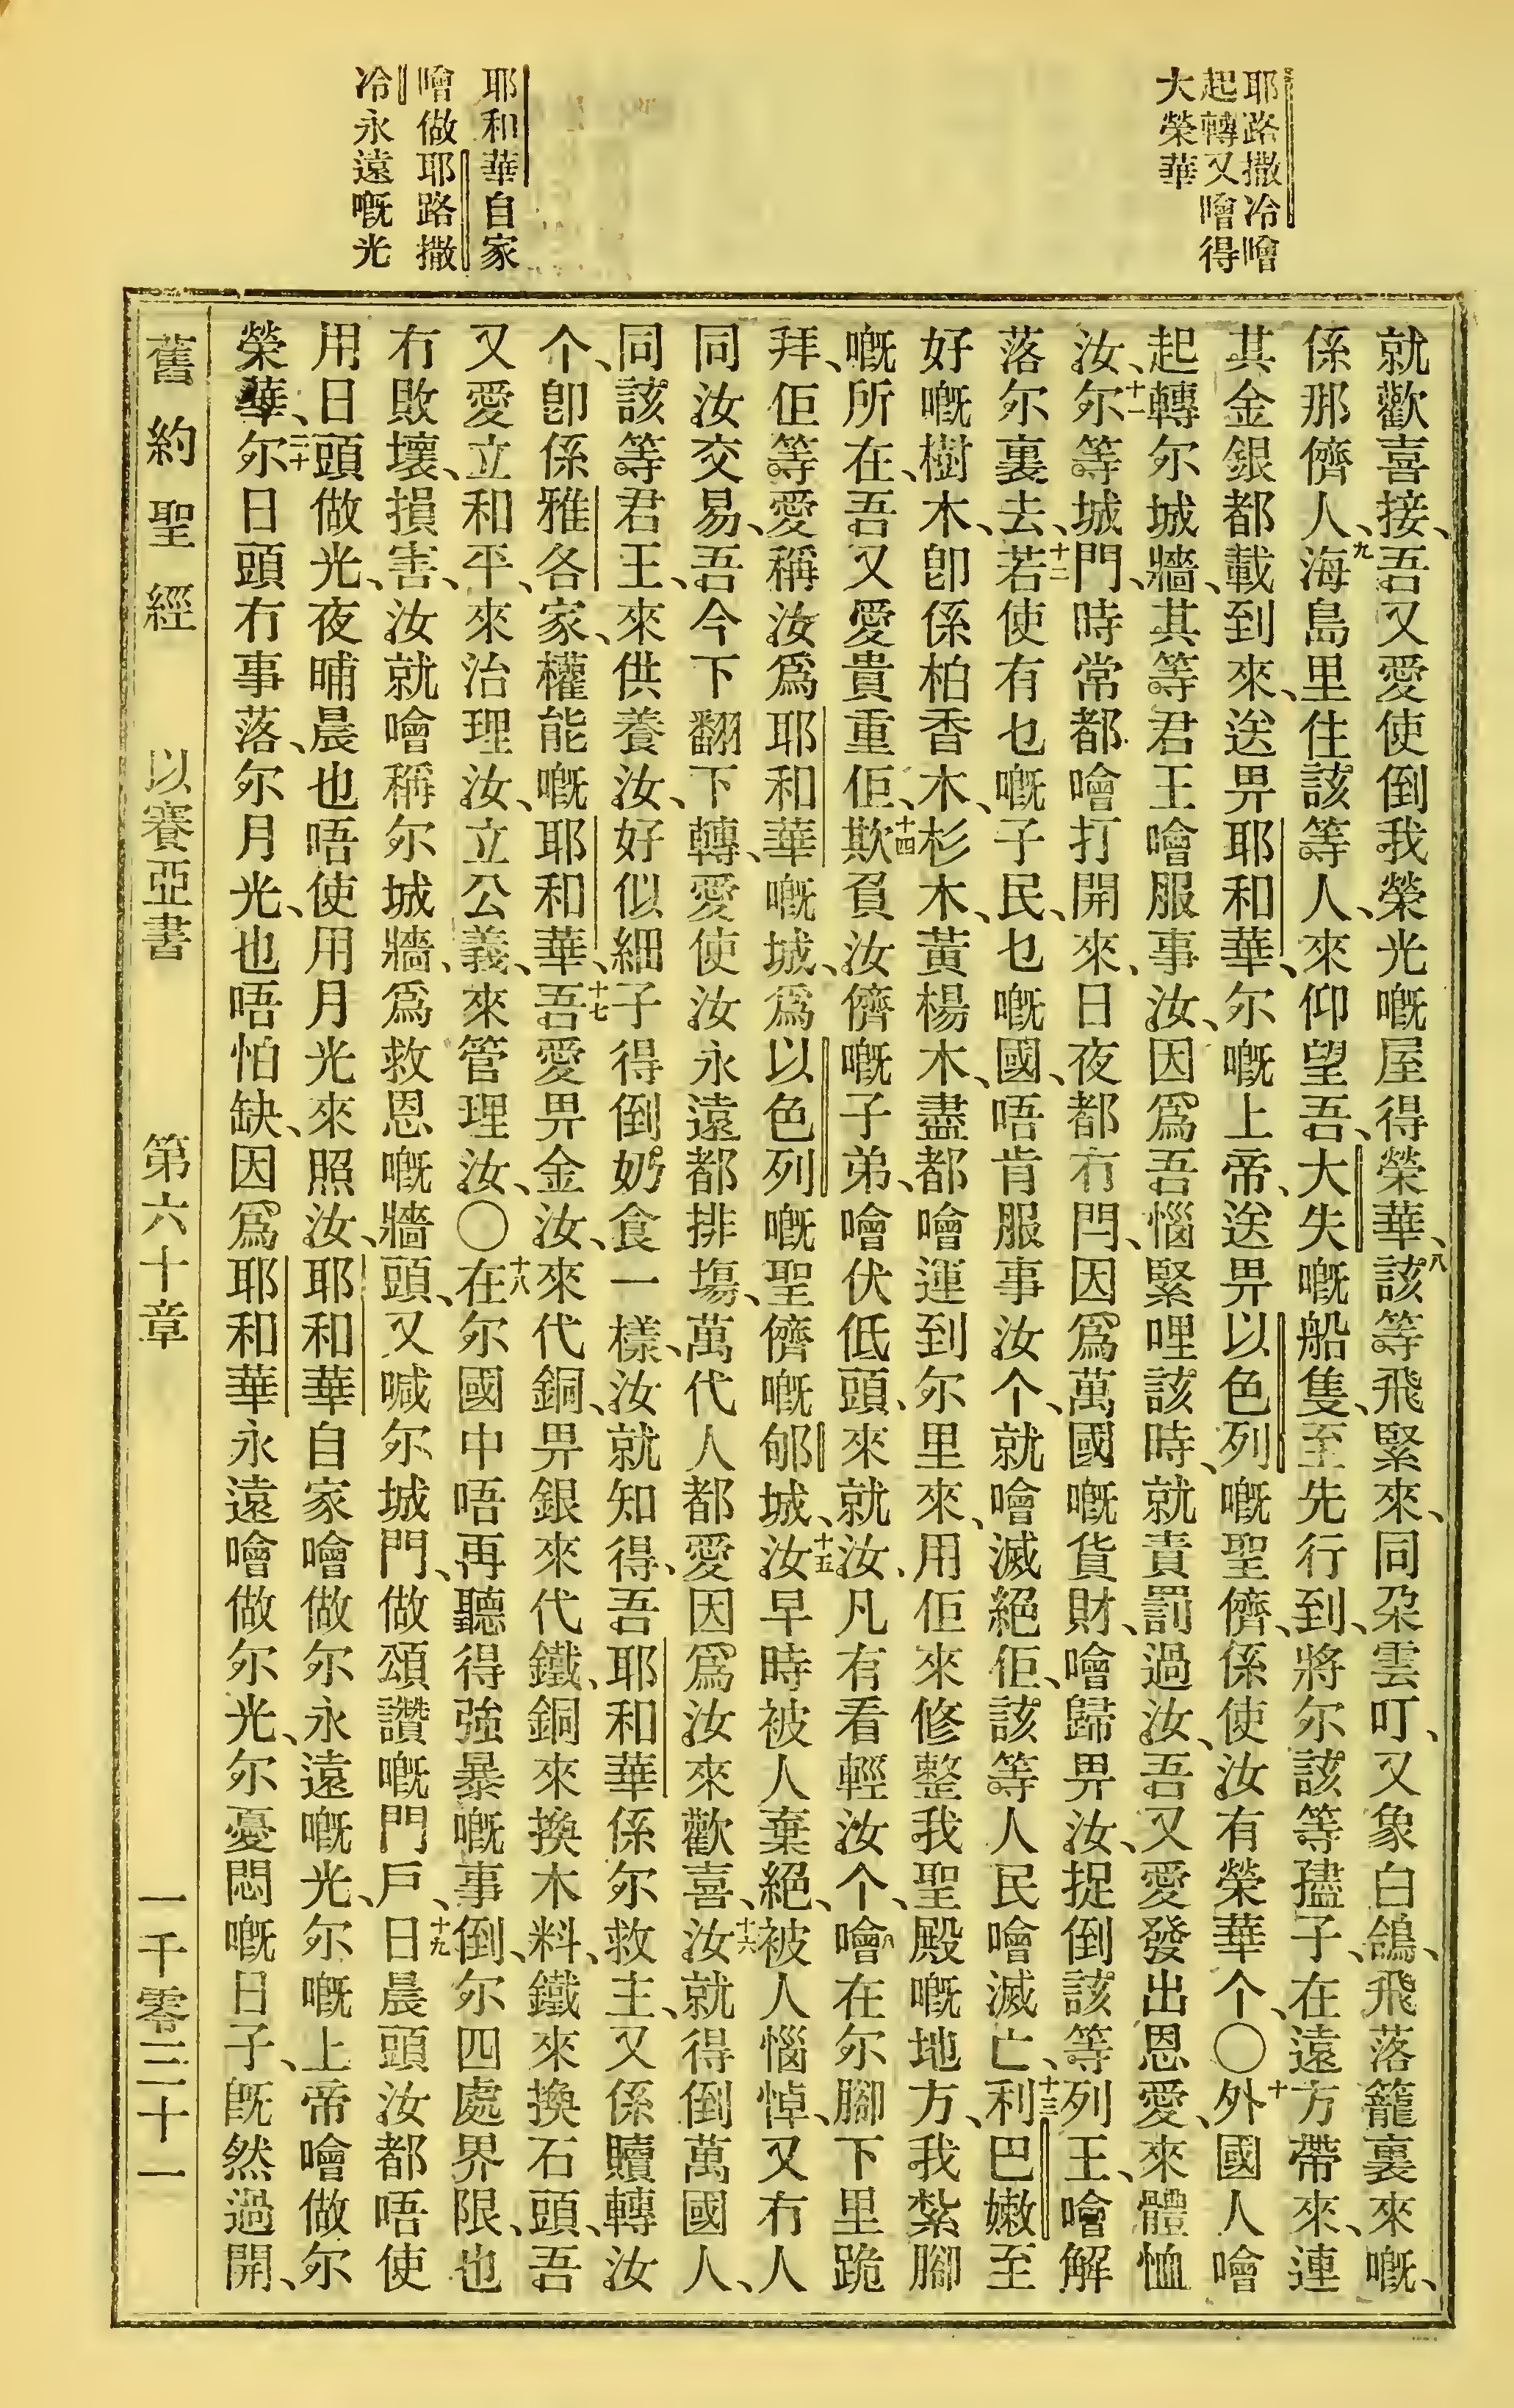 耶路撒冷噲
起轉又噲得
大榮華
耶和華自家
噲做耶路撒
冷永遠嘅光
就歡喜接、吾又愛使倒我榮光嘅屋得榮華、八該等飛緊來、同朶雲叮、又象白鴿、飛落籠裏來嘅、
係那儕人、九海島里住該等人、來仰望吾、大失嘅船隻、至先行到、將尔該等孻子、在遠方帶來、連
其金銀都載到來、送畀耶和華、尔嘅上帝、送畀以色列嘅聖儕、係使汝有榮華个、〇十外國人噲
起轉尔城牆、其等君王噲服事汝、因爲吾惱緊哩該時、就責罰過汝、吾又愛發出恩愛、來體恤
汝、十一尔等城門、時常都噲打開來、日夜都冇閂、因爲萬國嘅貨財、噲歸畀汝、捉倒該等列王、噲解
落尔裏去、十二若使有乜嘅子民、乜嘅國、唔肯服事汝个、就噲滅絕佢、該等人民噲滅亡、十三利巴嫩至
好嘅樹木、卽係柏香木、杉木、黃楊木、盡都噲運到尔里來、用佢來修整我聖殿嘅地方、我紮腳
嘅所在、吾又愛貴重佢、十四欺負汝儕嘅子弟、噲伏低頭、來就汝、凡有看輕汝个、噲在尔腳下里跪
拜、佢等愛稱汝爲耶和華嘅城、爲以色列嘅聖儕嘅郇城、十五汝早時被人棄絕、被人惱悼、又冇人
同汝交易、吾今下翻下轉、愛使汝永遠都排塲、萬代人都愛因爲汝來歡喜、十六汝就得倒萬國人、
同該等君王、來供養汝、好似細子得倒奶食一樣、汝就知得、吾耶和華係尔救主、又係贖轉汝
个、卽係雅各家、權能嘅耶和華、十七吾愛畀金汝、來代銅、畀銀來代鐵、銅來換木料、鐵來換石頭、吾
又愛立和平、來治理汝、立公義、來管理汝、〇十八在尔國中唔再聽得強暴嘅事倒、尔四處界限、也
冇敗壞、損害、汝就噲稱尔城牆、爲救恩嘅牆頭、又喊尔城門、做頌讚嘅門戶、十九日晨頭汝都唔使
用日頭做光、夜晡晨也唔使用月光來照汝、耶和華自家噲做尔永遠嘅光、尔嘅上帝噲做尔
榮華、二十尔日頭冇事落、尔月光、也唔怕缺、因爲耶和華永遠噲做尔光、尔憂悶嘅日子、旣然過開、
舊約聖經　以賽亞書　第六十章　一千零三十一